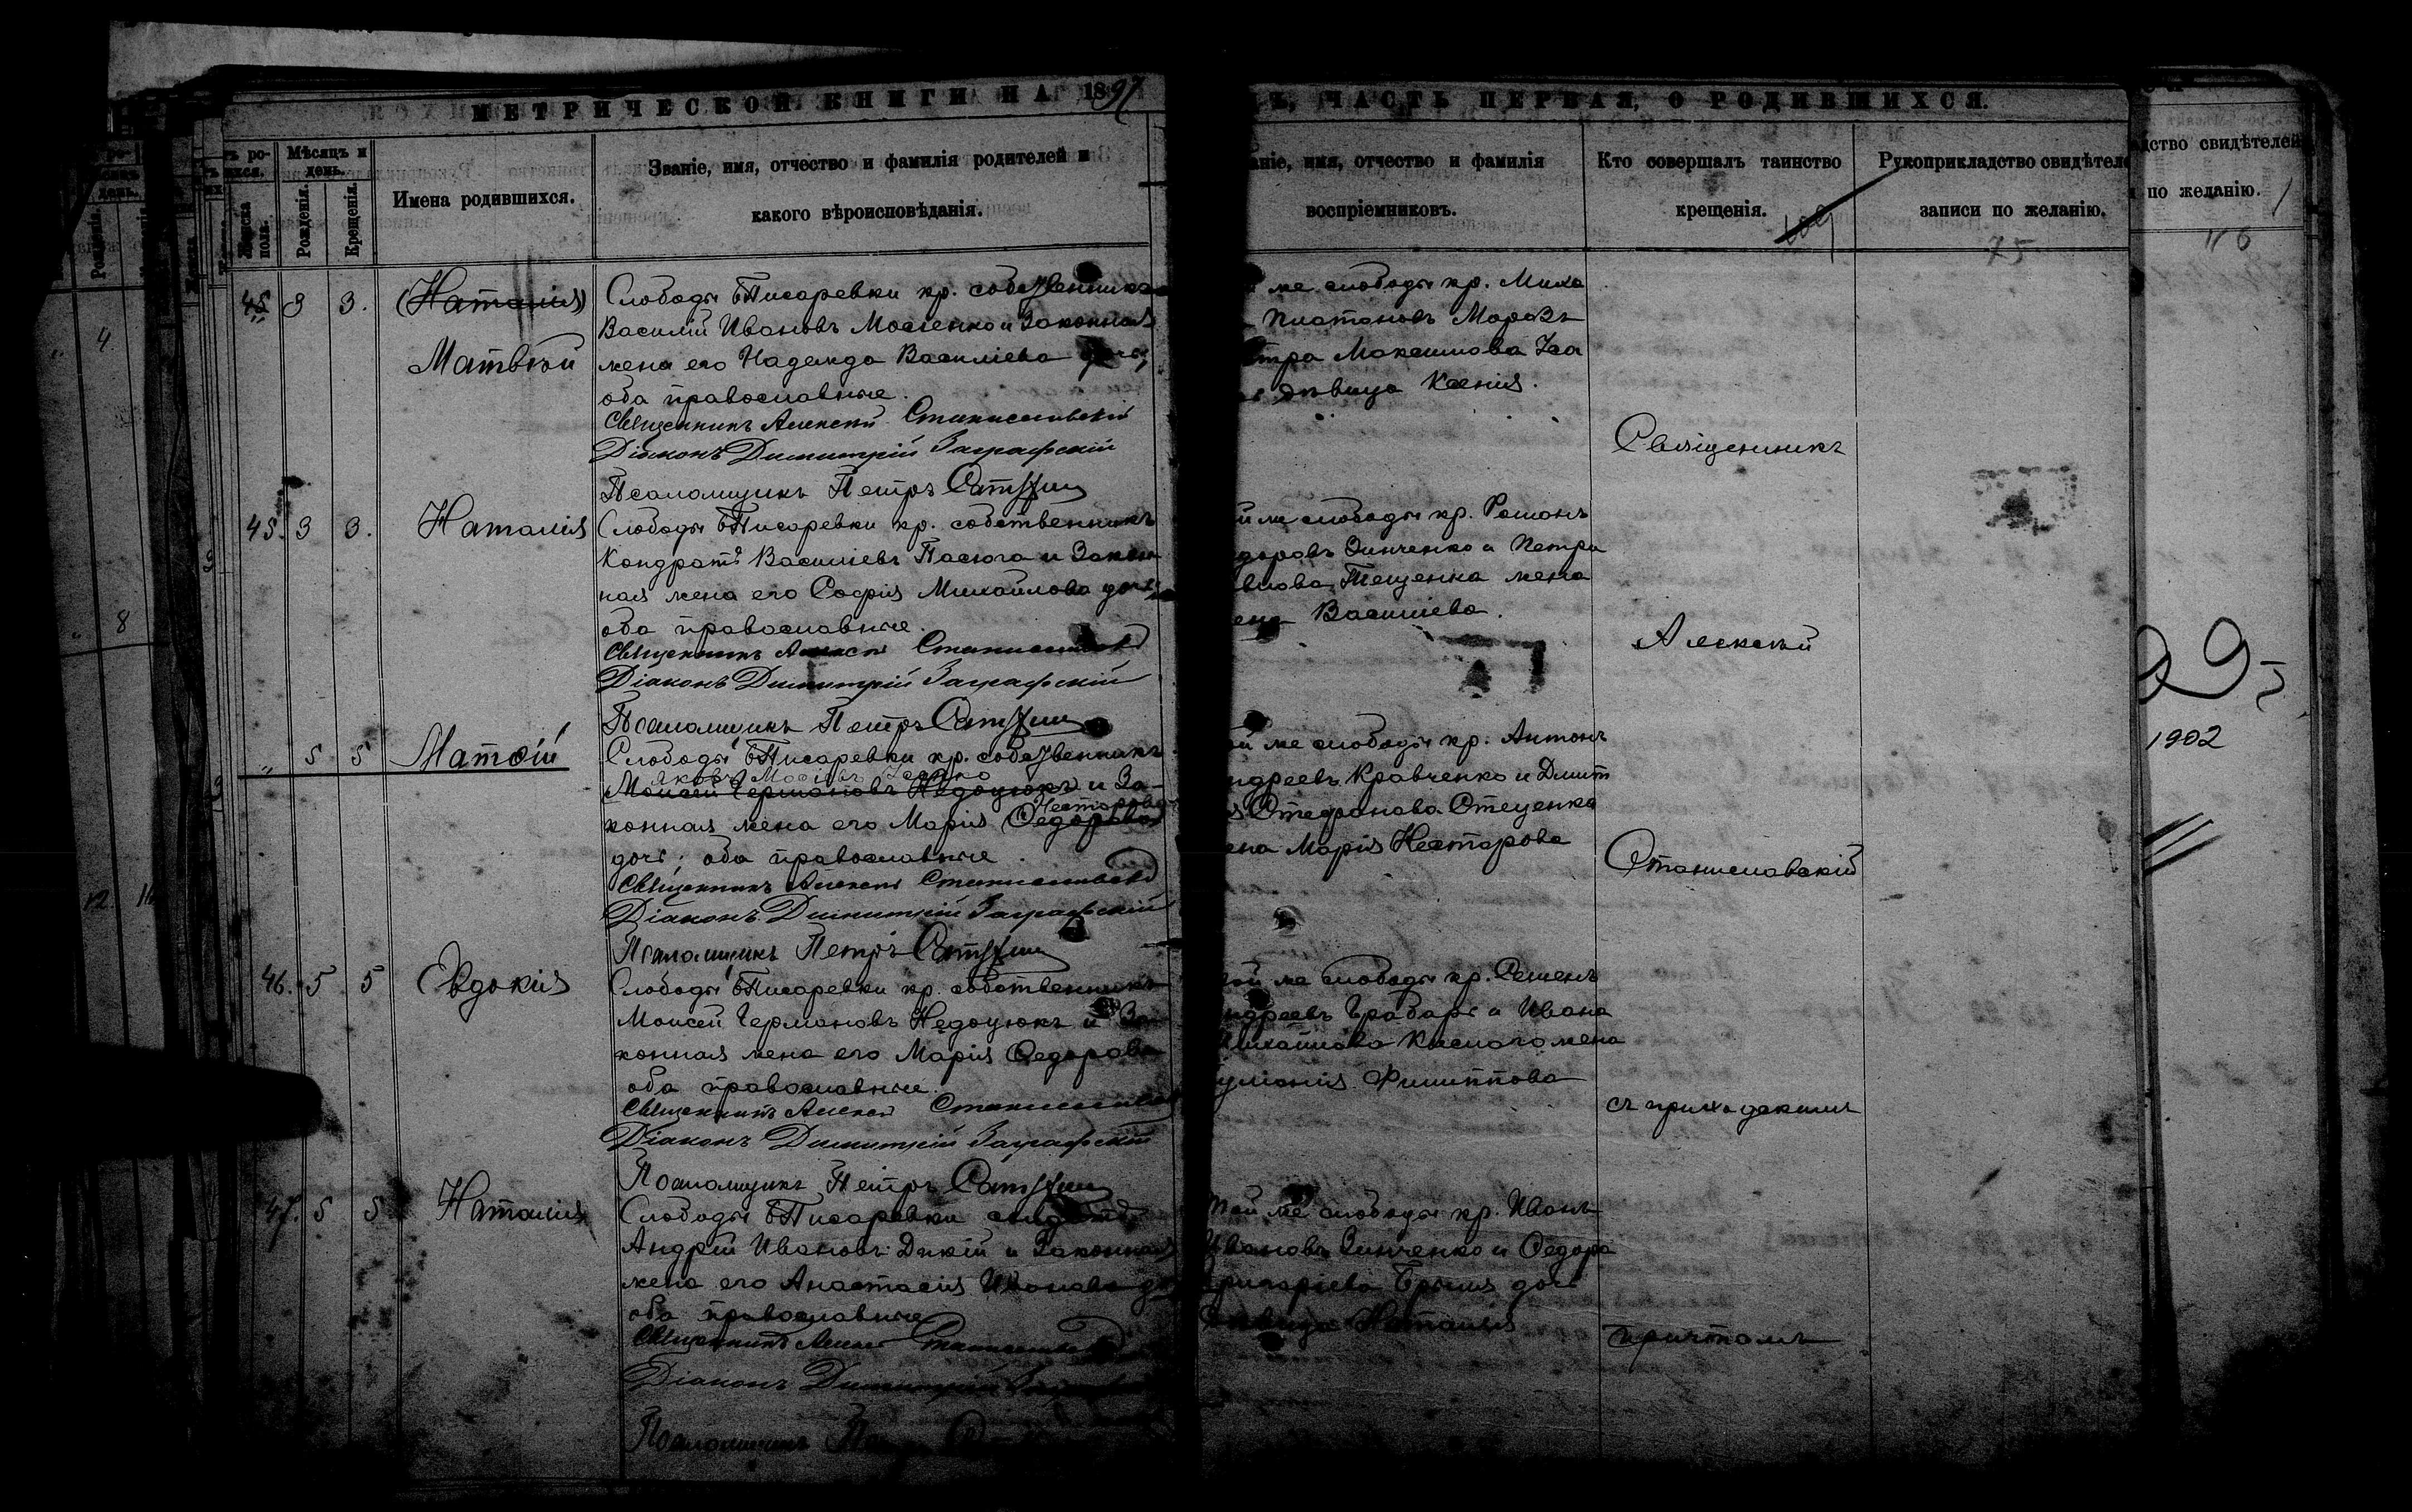 МЕТРИЧЕСКОЙ КНИГИ НА 1897
Ъ, ЧАСТЬ ПЕРВАЯ, О РОДИВШИХСЯ.
Мѣсяцъ и день.
Рожденія.
Крещенія.
Имена родившихся.
Званіе, имя, отчество и фамилія родителей и
какого вѣроисповѣданія.
аніе, имя, отчество и фамилія
воспріемниковъ.
Кто совершалъ таинство
крещенія.
Рукоприкладство свидѣтел
записи по желанію.
дство свидѣтелей
по желанію.
75
3 3. (Наталія)
Матвѣй
Слободы Писаревки кр. собственникъ
Василій Ивановъ и законная
жена его Надежда Василіева
оба православные.
Священникъ Алексѣй Станиславскій
Діаконъ Димитрій Заграфскій
Псаломщикъ Петръ
же слободы кр. Миха
Платоновъ Морозъ
тра Максимова
дѣвица Ксенія.
45. 3 3. Наталія
Слободы Писаревки кр. собственникъ
Кондратъ Василіевъ Пасюга и закон
ная жена его Софія Михайлова дочь
оба православные.
Священникъ Алексѣй Станиславскій
Діаконъ Димитрій Заграфскій
Псаломщикъ Петръ
й же слободы кр. Романъ
доровъ Зинченко и Петра
влова Тещенка жена
Василіева.
" 5 5 Матѳій
Слободы Писаревки кр. собственникъ
Моисей Германовъ Недоцюкъ и за-
Несторова
конная жена его Марія Ѳедорова
дочь; оба православные
Священникъ Алексѣй Станиславскій
Діаконъ Димитрій Заграфскій
Псаломщикъ Петръ
ой же слободы кр. Антонъ
ндреевъ Кравченко и Дмит
Стефанова Стеценка
ена Марія Несторова
46. 5 5 Евдокія
Слободы Писаревки кр. собственникъ
Моисей Германовъ Недоцюкъ и за
конная жена его Марія Ѳедорова
оба православные.
Священникъ Алексѣй Станиславскій
Діаконъ Димитрій Заграфскій
Псаломщикъ Петръ
ой же слободы кр. Семенъ
ндреевъ Грабарь и Ивана
Михайлова Кислого жена
уліанія Филиппова
47. 5 5 Наталія
Слободы Писаревки
Андрей Ивановъ Дикій и законная
жена его Анастасія Иванова
оба православные
Священникъ Алексѣй Станиславскій
Діаконъ Димитрій
Псаломщикъ
той же слободы кр. Иванъ
Ивановъ Зинченко и Ѳедора
Григоріева дочь
дѣвица Наталія
Священникъ
Алексѣй
Станиславскій
съ приходскимъ
причтомъ
1902
4
8
12